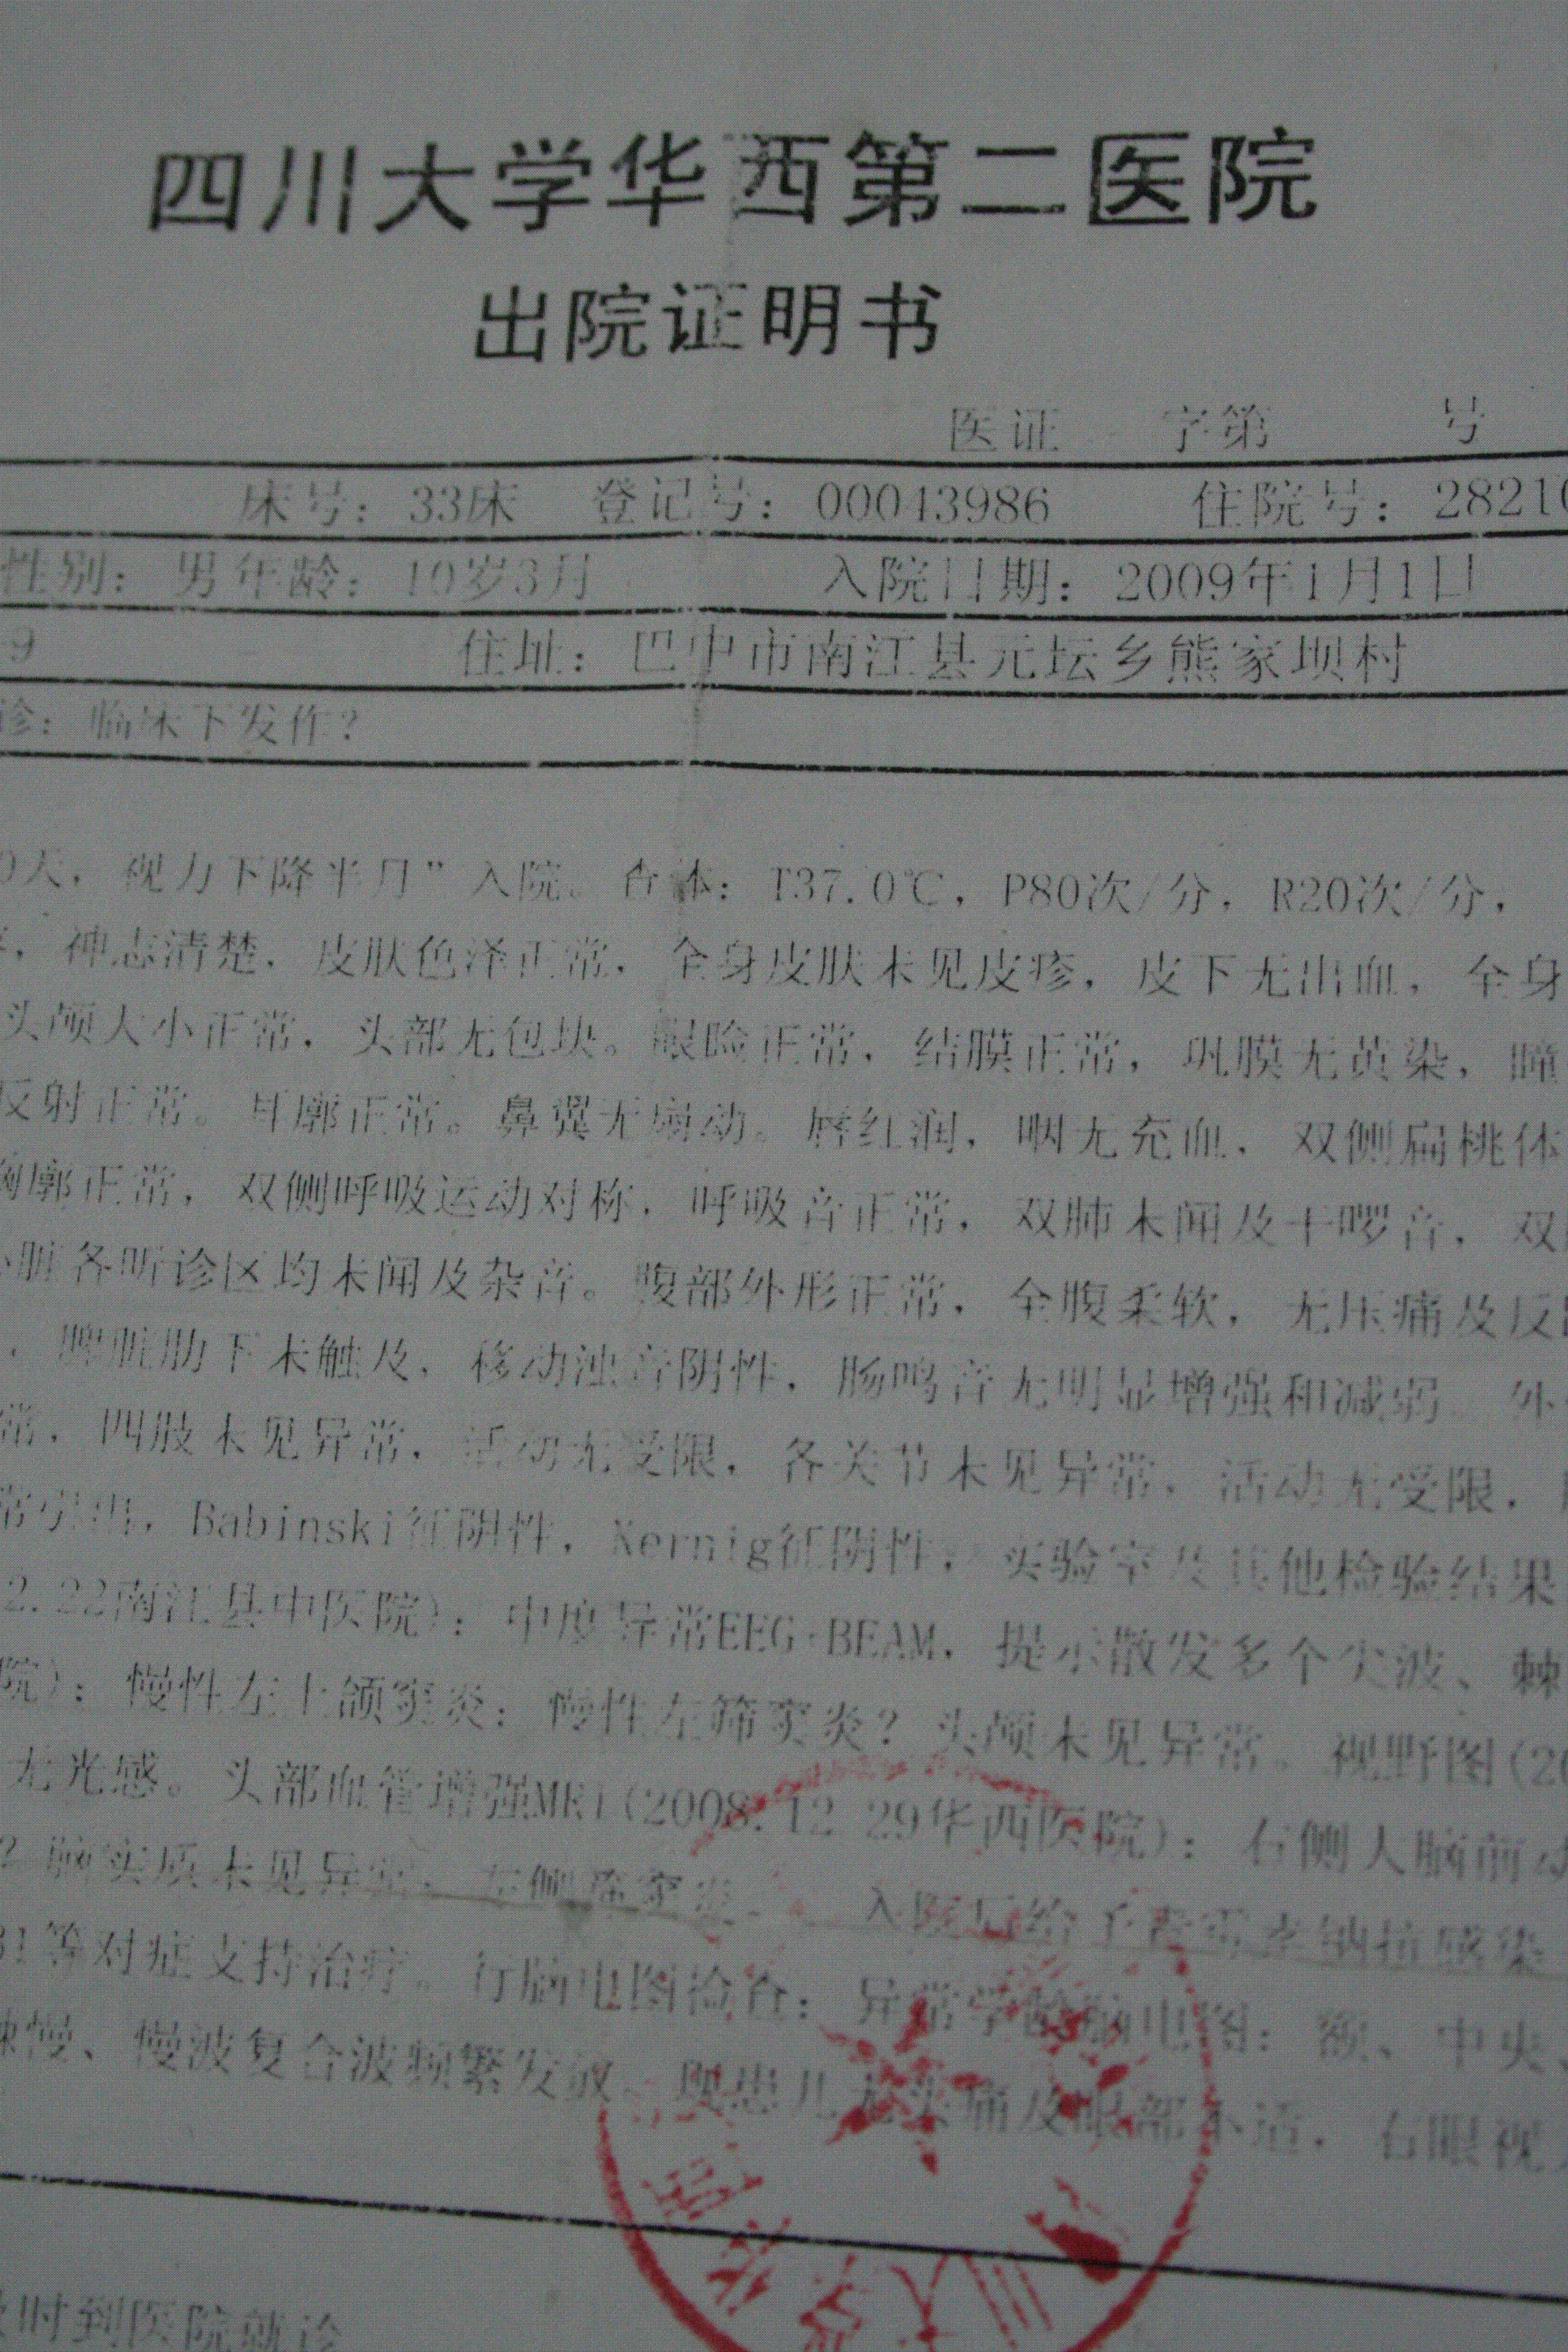 四川大学华西第二医院
出院证明书
医证 字第 号
床号：33床 登记号：00043986 住院号：28210
性别：男 年龄：10岁3月 入院日期：2009年1月1日
9 住址：巴中市南江县元坛乡熊家坝村
诊：临床下发作？
0天，视力下降半月”入院。查体：T37.0℃，P80次/分，R20次/分，
，神志清楚，皮肤色泽正常，全身皮肤未见皮疹，皮下无出血，全身
头颅大小正常，头部无包块。眼睑正常，结膜正常，巩膜无黄染，瞳
反射正常。耳廓正常。鼻翼无扇动。唇红润，咽无充血，双侧扁桃体
胸廓正常，双侧呼吸运动对称，呼吸音正常，双肺未闻及干啰音，双
心脏各听诊区均未闻及杂音。腹部外形正常，全腹柔软，无压痛及反
，脾脏肋下未触及，移动浊音阴性，肠鸣音无明显增强和减弱。外
常，四肢未见异常，活动无受限，各关节未见异常，活动无受限，
常引出，Babinski征阴性，Kernig征阴性，实验室及其他检验结果
2.22南江县中医院)：中度异常EEG BEAM，提示散发多个尖波、棘
院)：慢性左上颌窦炎；慢性左筛窦炎？头颅未见异常。视野图(20
无光感。头部血管增强MRI(2008.12.29华西医院)：右侧大脑前动
？脑实质未见异常，左侧 窦炎 入院后给予 钠抗感染
B1等对症支持治疗。行脑电图检查：异常学龄脑电图：额、中央
棘慢、慢波复合波频繁发放。现患儿无头痛及眼部不适，右眼视力
时到医院就诊